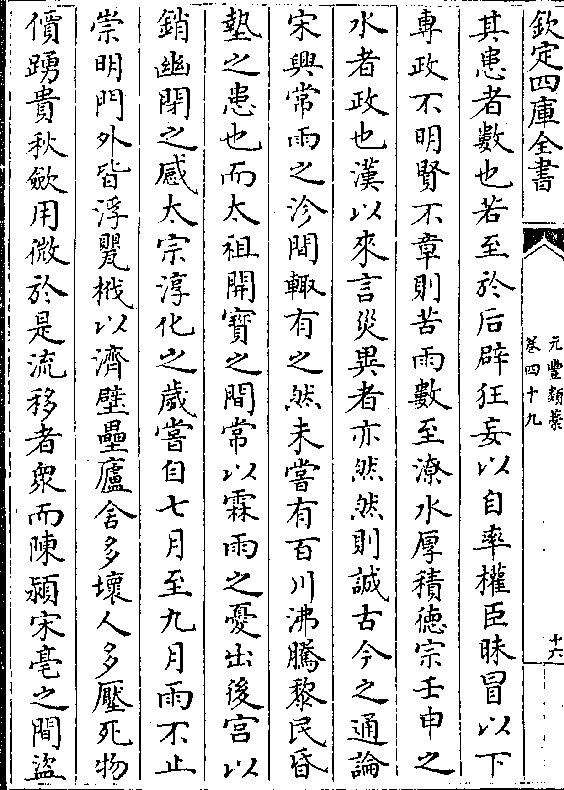 欽定四庫全書
元豐類藳
卷四十九
十六
其患者數也若至於后辟狂妄以自率權臣昧冒以下
專政不明賢不章則苦雨數至潦水厚積德宗壬申之
水者政也漢以來言災異者亦然然則誠古今之通論
宋興常雨之沴間輙有之然未嘗有百川沸騰黎民昏
墊之患也而太祖開寶之間常以霖雨之憂出後宫以
銷幽閉之感太宗淳化之歲嘗自七月至九月雨不止
崇明門外皆浮甖栰以濟壁壘廬舍多壞人多壓死物
價踴貴秋斂用微於是流移者衆而陳潁宋亳之間盜